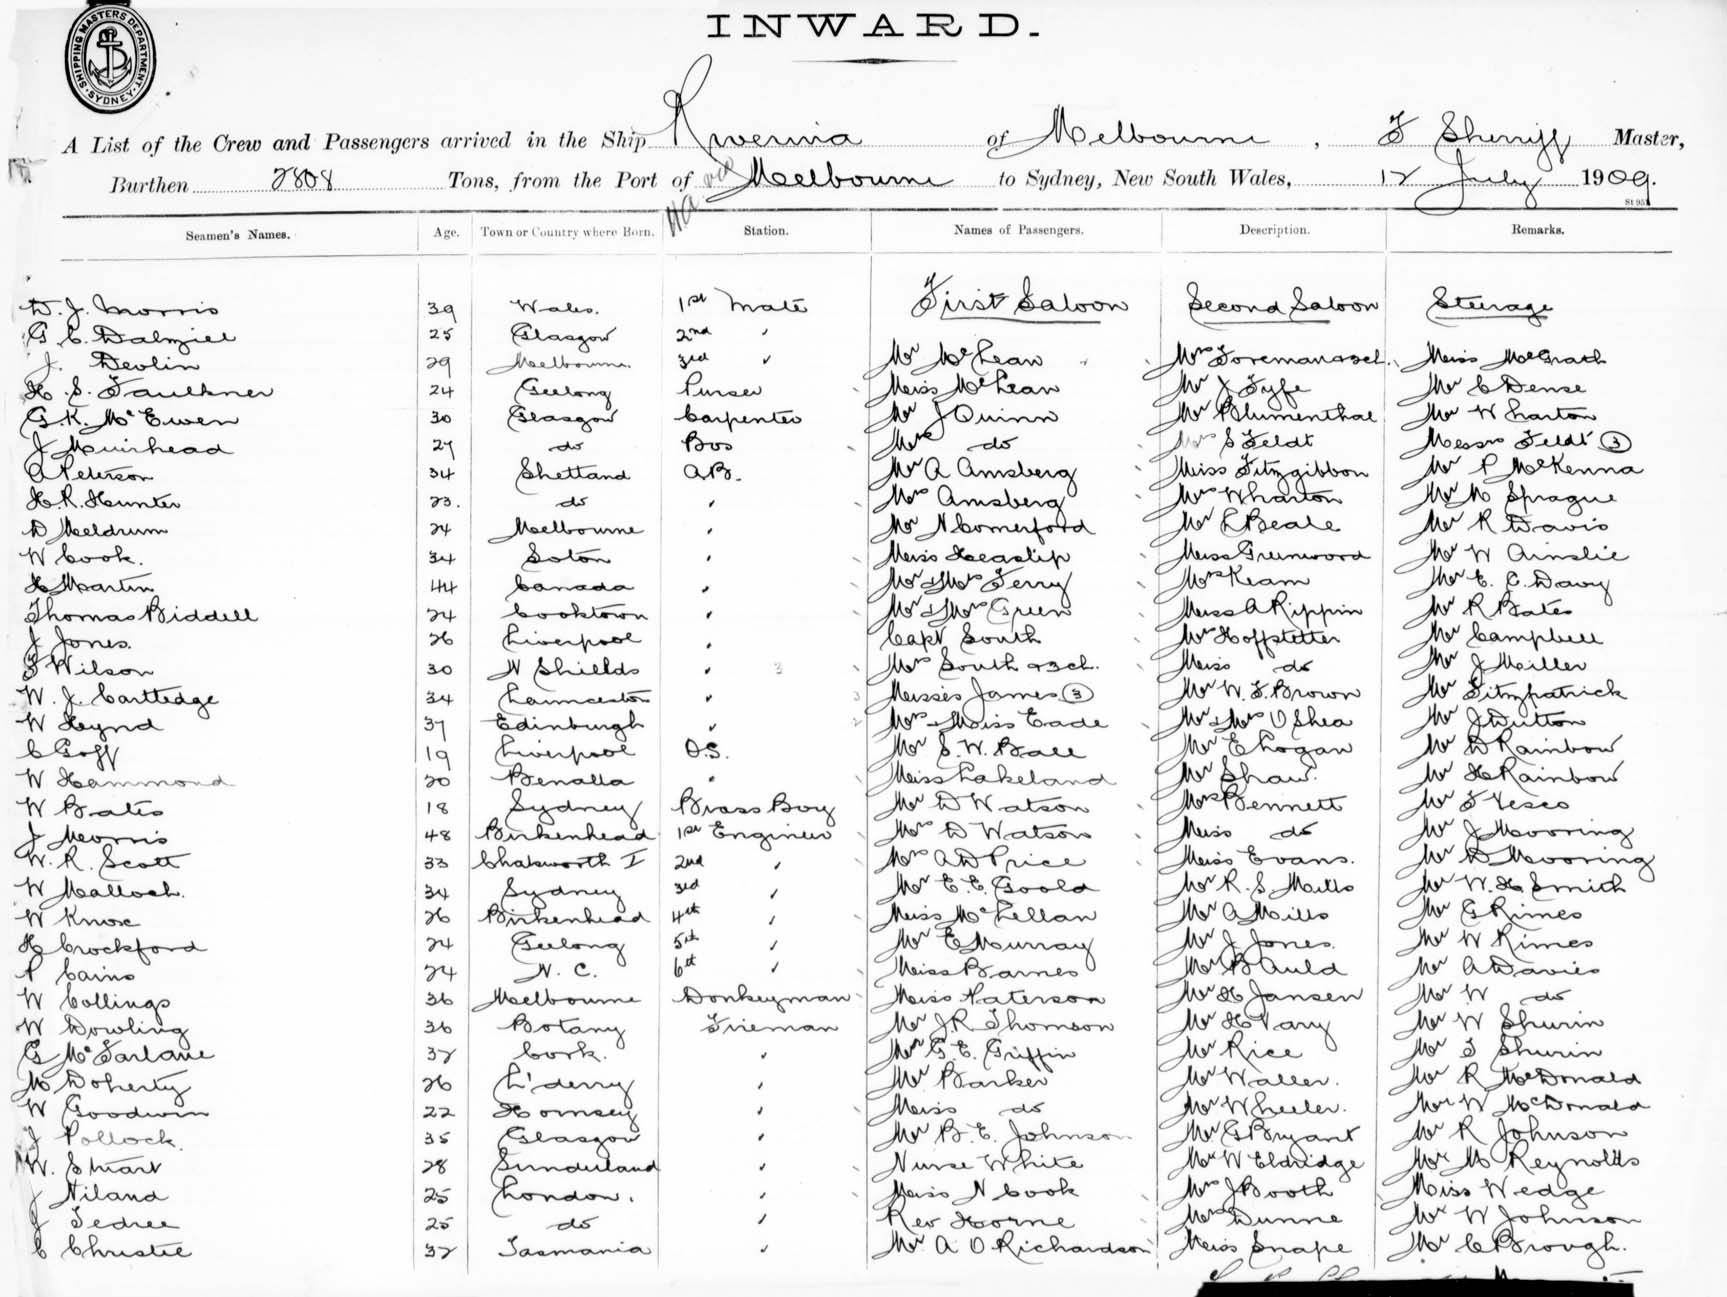 INWARD.
SHIPPING MASTERS DEPARTMENT. SYDNEY.
A List of the Crew and Passengers arrived in the Ship Riverina of Melbourne, F Sherriff Master,
Burthen 2808 Tons, from the Port of Melbourne to Sydney, New South Wales, 12 July 1909.
Seamen's Names. Age. Town or Country where Born. Station. Names of Passengers. Description. Remarks.
D. J. Morris 39 Wales. 1st Mate First Saloon Second Saloon Steerage
G C Dalziel 25 Glasgow 2nd "
J. Devlin 29 Melbourne. 3rd " Mr McLean Mrs Foreman & 2ch. Miss McGrath
H. S. Faulkner 24 Geelong Purser Miss McLean Mr J Fyfe Mr C Dense
G. K. McEwen 30 Glasgow Carpenter Mr J Quinn Mr Blumenthal Mr Wharton
J Muirhead 27 do Bos Mrs do S Feldt Messrs Feldt (3)
A Peterson 34 Shetland A.B. Mr A Amsberg Miss Fitzgibbon Mr P McKenna
H. R. Hunter 23. do " Mrs Amsberg Mrs Wharton Mr M Sprague
D Meldrum 24 Melbourne " Mr N Comerford Mr L Beale Mr R Davis
W Cook. 34 Soton " Miss Heaslip Miss Greenwood Mr W Ainslie
H Martin 44 Canada " Mr & Mrs Terry Mrs Keam Mr E. C. Davy
Thomas Biddell 24 Cooktown " Mr & Mrs Green Miss A Rippin Mr R Bates
J Jones. 26 Liverpool " Capt South Mr Hoffstetter Mr Campbell
F Wilson 30 N Shields " 3 Mrs South & 3ch. Miss do Mr J Miller
W. J. Cartledge 34 Launceston " Misses James (3) Mr W. F. Brown Mr Fitzpatrick
W Hynd 37 Edinburgh " Mrs & Miss Eade Mr & Mrs O'Shea Mr J Dutton
C Goff 19 Liverpool O.S. Mr S. W. Ball Mr E Logan Mr D Rainbow
W Hammond 20 Benalla " Miss Lakeland Mr Shaw. Mr H Rainbow
W Bates 18 Sydney Brass Boy Mr D Watson Mrs Bennett Mr F Vesco
J Morris 48 Birkenhead 1st Engineer Mrs D Watson Miss do Mr J Mooring
W. R. Scott 33 Chatsworth I 2nd " Mrs A D Price Miss Evans. Mr D Mooring
W Malloch. 34 Sydney 3rd " Mr E. E. Goold Mr R. S. Mills Mr W. H Smith
W Knox 26 Birkenhead 4th " Miss McLellan Mr A Mills Mr G Rimes
H Crockford 24 Geelong 5th " Mr E Murray Mr J Jones. Mr W Rimes
P Cains 24 N. C. 6th " Miss Barnes Mr B Auld Mr A Davies
W Collings 36 Melbourne Donkeyman Miss Paterson Mr H Jansen Mr W do
W Dowling 36 Botany Fireman Mr J. R Thomson Mr H Vary Mr W Shurin
G McFarlane 32 Cork. " Mr G. E. Griffin Mr Rice Mr F Shurin
M Doherty 26 L'derry " Mr Barker Mr Waller. Mr R McDonald
W Goodwin 22 Hornsey " Miss do Mr Wheeler. Mr W McDonald
J Pollock. 35 Glasgow " Mr B. E. Johnson Mr G Bryant Mr R Johnson
W. Stuart 28 Sunderland " Nurse White Mr W Eldridge Mr M Reynolds
J Niland 25 London. " Miss N Cook Mrs J Booth Miss Wedge
J Tedree 25 do " Rev Horne Mrs Dunne Mr W Johnson
C Christie 32 Tasmania " Mr A O Richardson Miss Snape Mr C Brough.